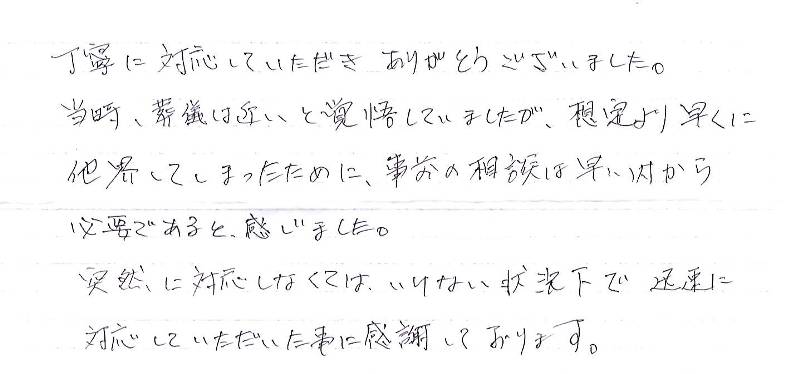 丁寧に対応していただき ありがとうございました。
当時、葬儀は近いと覚悟していましたが、想定より早くに
他界してしまったために、事前の相談は早い内から
必要であると、感じました。
突然、に対応しなくては、いけない状況下で 迅速に
対応していただいた事に感謝しております。